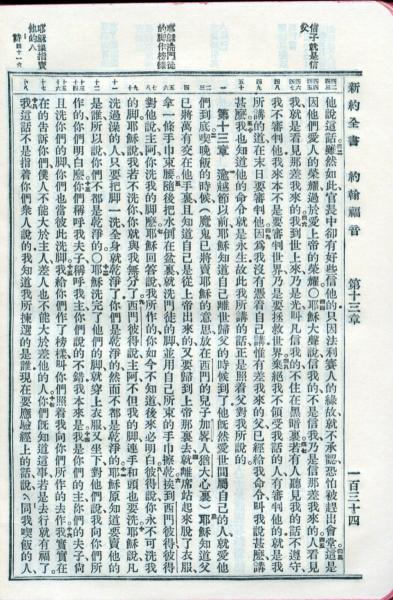 新約全書 約翰福音 第十三章 一百三十四
信子就是信
父
他說這話雖然如此官長中卻有好些信他的只因法利賽人的緣故就不承認恐怕被趕出會堂這是
因他們愛人的榮耀過於愛上帝的榮耀〇耶穌大聲說信我的不是信我乃是信那差我來的人看見
我就是看見那差我來的我到世上來乃是光叫凡信我的不住在黑暗裏若有人聽見我的話不遵守
我不審判他我來本不是要審判世界乃是要拯救世界棄絕我不領受我話的人有審判他的就是我
所講的道在末日要審判他因為我沒有憑着自己講惟有差我來的父已經給我命令叫我說甚麼講
甚麼我也知道他的命令就是永生故此我所講的話正是照着父對我所說的
耶穌洗門徒
的腳作榜樣
第十三章 逾越節以前耶穌知道自己離世歸父的時候到了他既然愛世間屬自己的人就愛他
們到底喫晚飯的時候(魔鬼已將賣耶穌的意思放在西門的兒子加畧人猶大心裏)耶穌知道父
已將萬有交在他手裏且知道自己是從上帝出來的又要歸到上帝那裏去就離席站起來脫了衣服
拿一條手巾束腰隨後把水倒在盆裏就洗門徒的腳並用自己所束的手巾擦乾挨到西門彼得彼得
對他說主阿你洗我的腳麼耶穌回答說我所作的你如今不知道後來必明白彼得說你永不可洗我
的腳耶穌說我若不洗你你就與我無分了西門彼得說主阿不但我的腳連手和頭也要洗耶穌說凡
洗過澡的人只要把腳一洗全身就乾淨了你們是乾淨的然而不都是乾淨的耶穌原知道要賣他的
是誰所以說你們不都是乾淨的〇耶穌洗完了他們的腳就穿上衣服又坐下對他們說我向你們所
作的你們明白麼你們稱呼我夫子稱呼我主你們說的不錯我本來是我是你們的主你們的夫子尚
且洗你們的腳你們也當彼此洗腳我給你們作了榜樣叫你們照着我向你們所作的去作我實實在
在的告訴你們僕人不能大於主人差人也不能大於差他的人你們既知道這事若是去行就有福了
耶穌指賣
他的人
詩四十一九
我這話不是指着你們衆人說的我知道我所揀選的是誰現在要應驗經上的話說同我喫飯的人